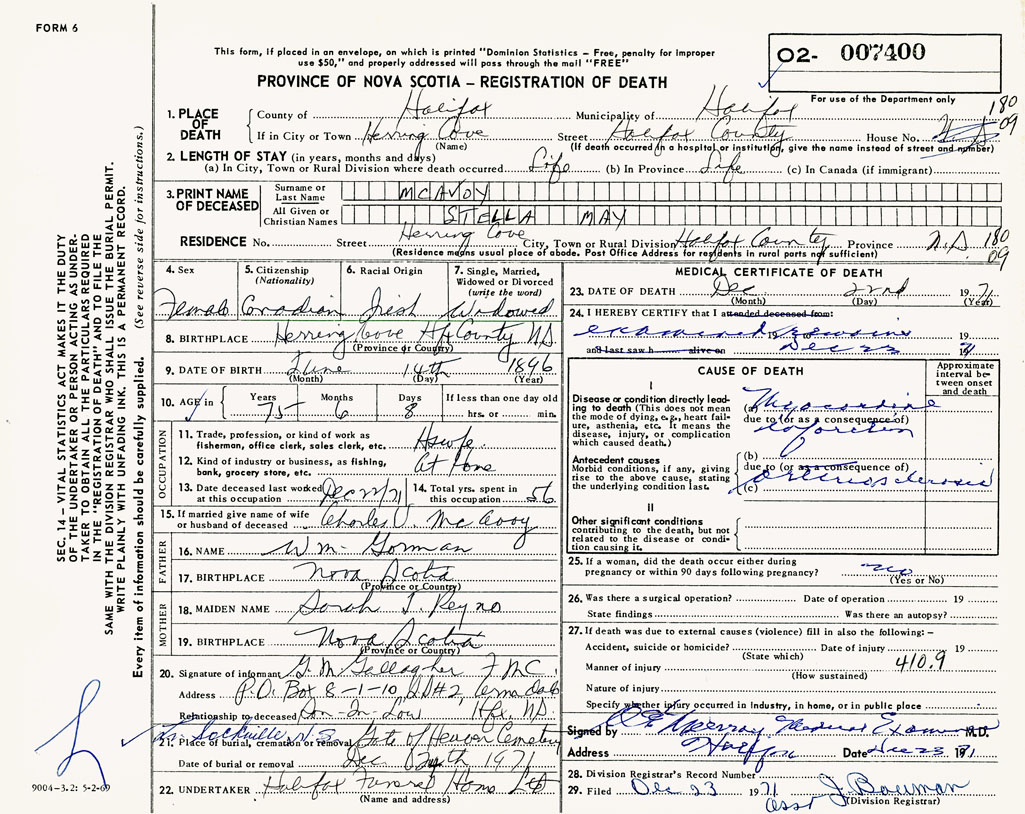 FORM 6
This form, if placed in an envelope, on which is printed "Dominion Statistics – Free, penalty for improper
use $50," and properly addressed will pass through the mail "FREE"
O2- 007400
PROVINCE OF NOVA SCOTIA – REGISTRATION OF DEATH
For use of the Department only
180
09
1. PLACE OF DEATH
County of Halifax Municipality of Halifax
If in City or Town Herring Cove Street Halifax County House No.
(Name) (If death occurred in a hospital or institution, give the name instead of street and number)
2. LENGTH OF STAY (in years, months and days)
(a) In City, Town or Rural Division where death occurred Life (b) In Province Life (c) In Canada (if immigrant)
3. PRINT NAME OF DECEASED
Surname or Last Name MCAVOY
All Given or Christian Names STELLA MAY
RESIDENCE No. Street Herring Cove City, Town or Rural Division Halifax County Province N.S. 180
09
(Residence means usual place of abode. Post Office Address for residents in rural parts not sufficient)
4. Sex
Female
5. Citizenship (Nationality)
Canadian
6. Racial Origin
Irish
7. Single, Married, Widowed or Divorced (write the word)
Widowed
8. BIRTHPLACE Herring Cove Hfx County NS
(Province or Country)
9. DATE OF BIRTH June 14th 1896
(Month) (Day) (Year)
10. AGE in Years 75 Months 6 Days 8 If less than one day old
hrs. or min.
OCCUPATION
11. Trade, profession, or kind of work as fisherman, office clerk, sales clerk, etc. Hswfe.
12. Kind of industry or business, as fishing, bank, grocery store, etc. At Home
13. Date deceased last worked at this occupation Dec /71 14. Total yrs. spent in this occupation 56
15. If married give name of wife or husband of deceased Charles V. McAvoy
FATHER
16. NAME Wm. Gorman
17. BIRTHPLACE Nova Scotia
(Province or Country)
MOTHER
18. MAIDEN NAME Sarah J. Reyno
19. BIRTHPLACE Nova Scotia
(Province or Country)
20. Signature of informant G. M. Gallagher
Address P.O. Box 8-1-10, RR#2,
Relationship to deceased Son-In-Law Hfx. NS.
Lr. Sackville, N.S.
21. Place of burial, cremation or removal Gate of Heaven Cemetery
Date of burial or removal Dec 24th 1971
22. UNDERTAKER Halifax Funeral Home Ltd
(Name and address)
MEDICAL CERTIFICATE OF DEATH
23. DATE OF DEATH Dec 22nd 1971
(Month) (Day) (Year)
24. I HEREBY CERTIFY that I attended deceased from:
examined remains 19
and last saw h alive on Dec 23 1971
CAUSE OF DEATH
Approximate interval between onset and death
I
Disease or condition directly leading to death (This does not mean the mode of dying, e.g., heart failure, asthenia, etc. It means the disease, injury, or complication which caused death.)
(a) Myocardial
due to (or as a consequence of)
infarction
Antecedent causes
Morbid conditions, if any, giving rise to the above cause, stating the underlying condition last.
(b)
due to (or as a consequence of)
(c) Arteriosclerosis
II
Other significant conditions contributing to the death, but not related to the disease or condition causing it.
25. If a woman, did the death occur either during pregnancy or within 90 days following pregnancy? no
(Yes or No)
26. Was there a surgical operation? Date of operation 19
State findings Was there an autopsy?
27. If death was due to external causes (violence) fill in also the following: –
Accident, suicide or homicide? Date of injury 19
(State which)
Manner of injury 410.9
(How sustained)
Nature of injury
Specify whether injury occurred in Industry, in home, or in public place
Signed by Medical Examiner M.D.
Address Halifax Date Dec 23 1971
28. Division Registrar's Record Number
29. Filed Dec 23 1971 J. Bauman
Asst (Division Registrar)
SEC. 14 – VITAL STATISTICS ACT MAKES IT THE DUTY
OF THE UNDERTAKER OR PERSON ACTING AS UNDER-
TAKER TO OBTAIN ALL THE PARTICULARS REQUIRED
IN THE "REGISTRATION OF DEATH" AND TO FILE THE
SAME WITH THE DIVISION REGISTRAR WHO SHALL ISSUE THE BURIAL PERMIT.
WRITE PLAINLY WITH UNFADING INK. THIS IS A PERMANENT RECORD.
Every item of information should be carefully supplied. (See reverse side for instructions.)
9004-3.2: 5-2-69